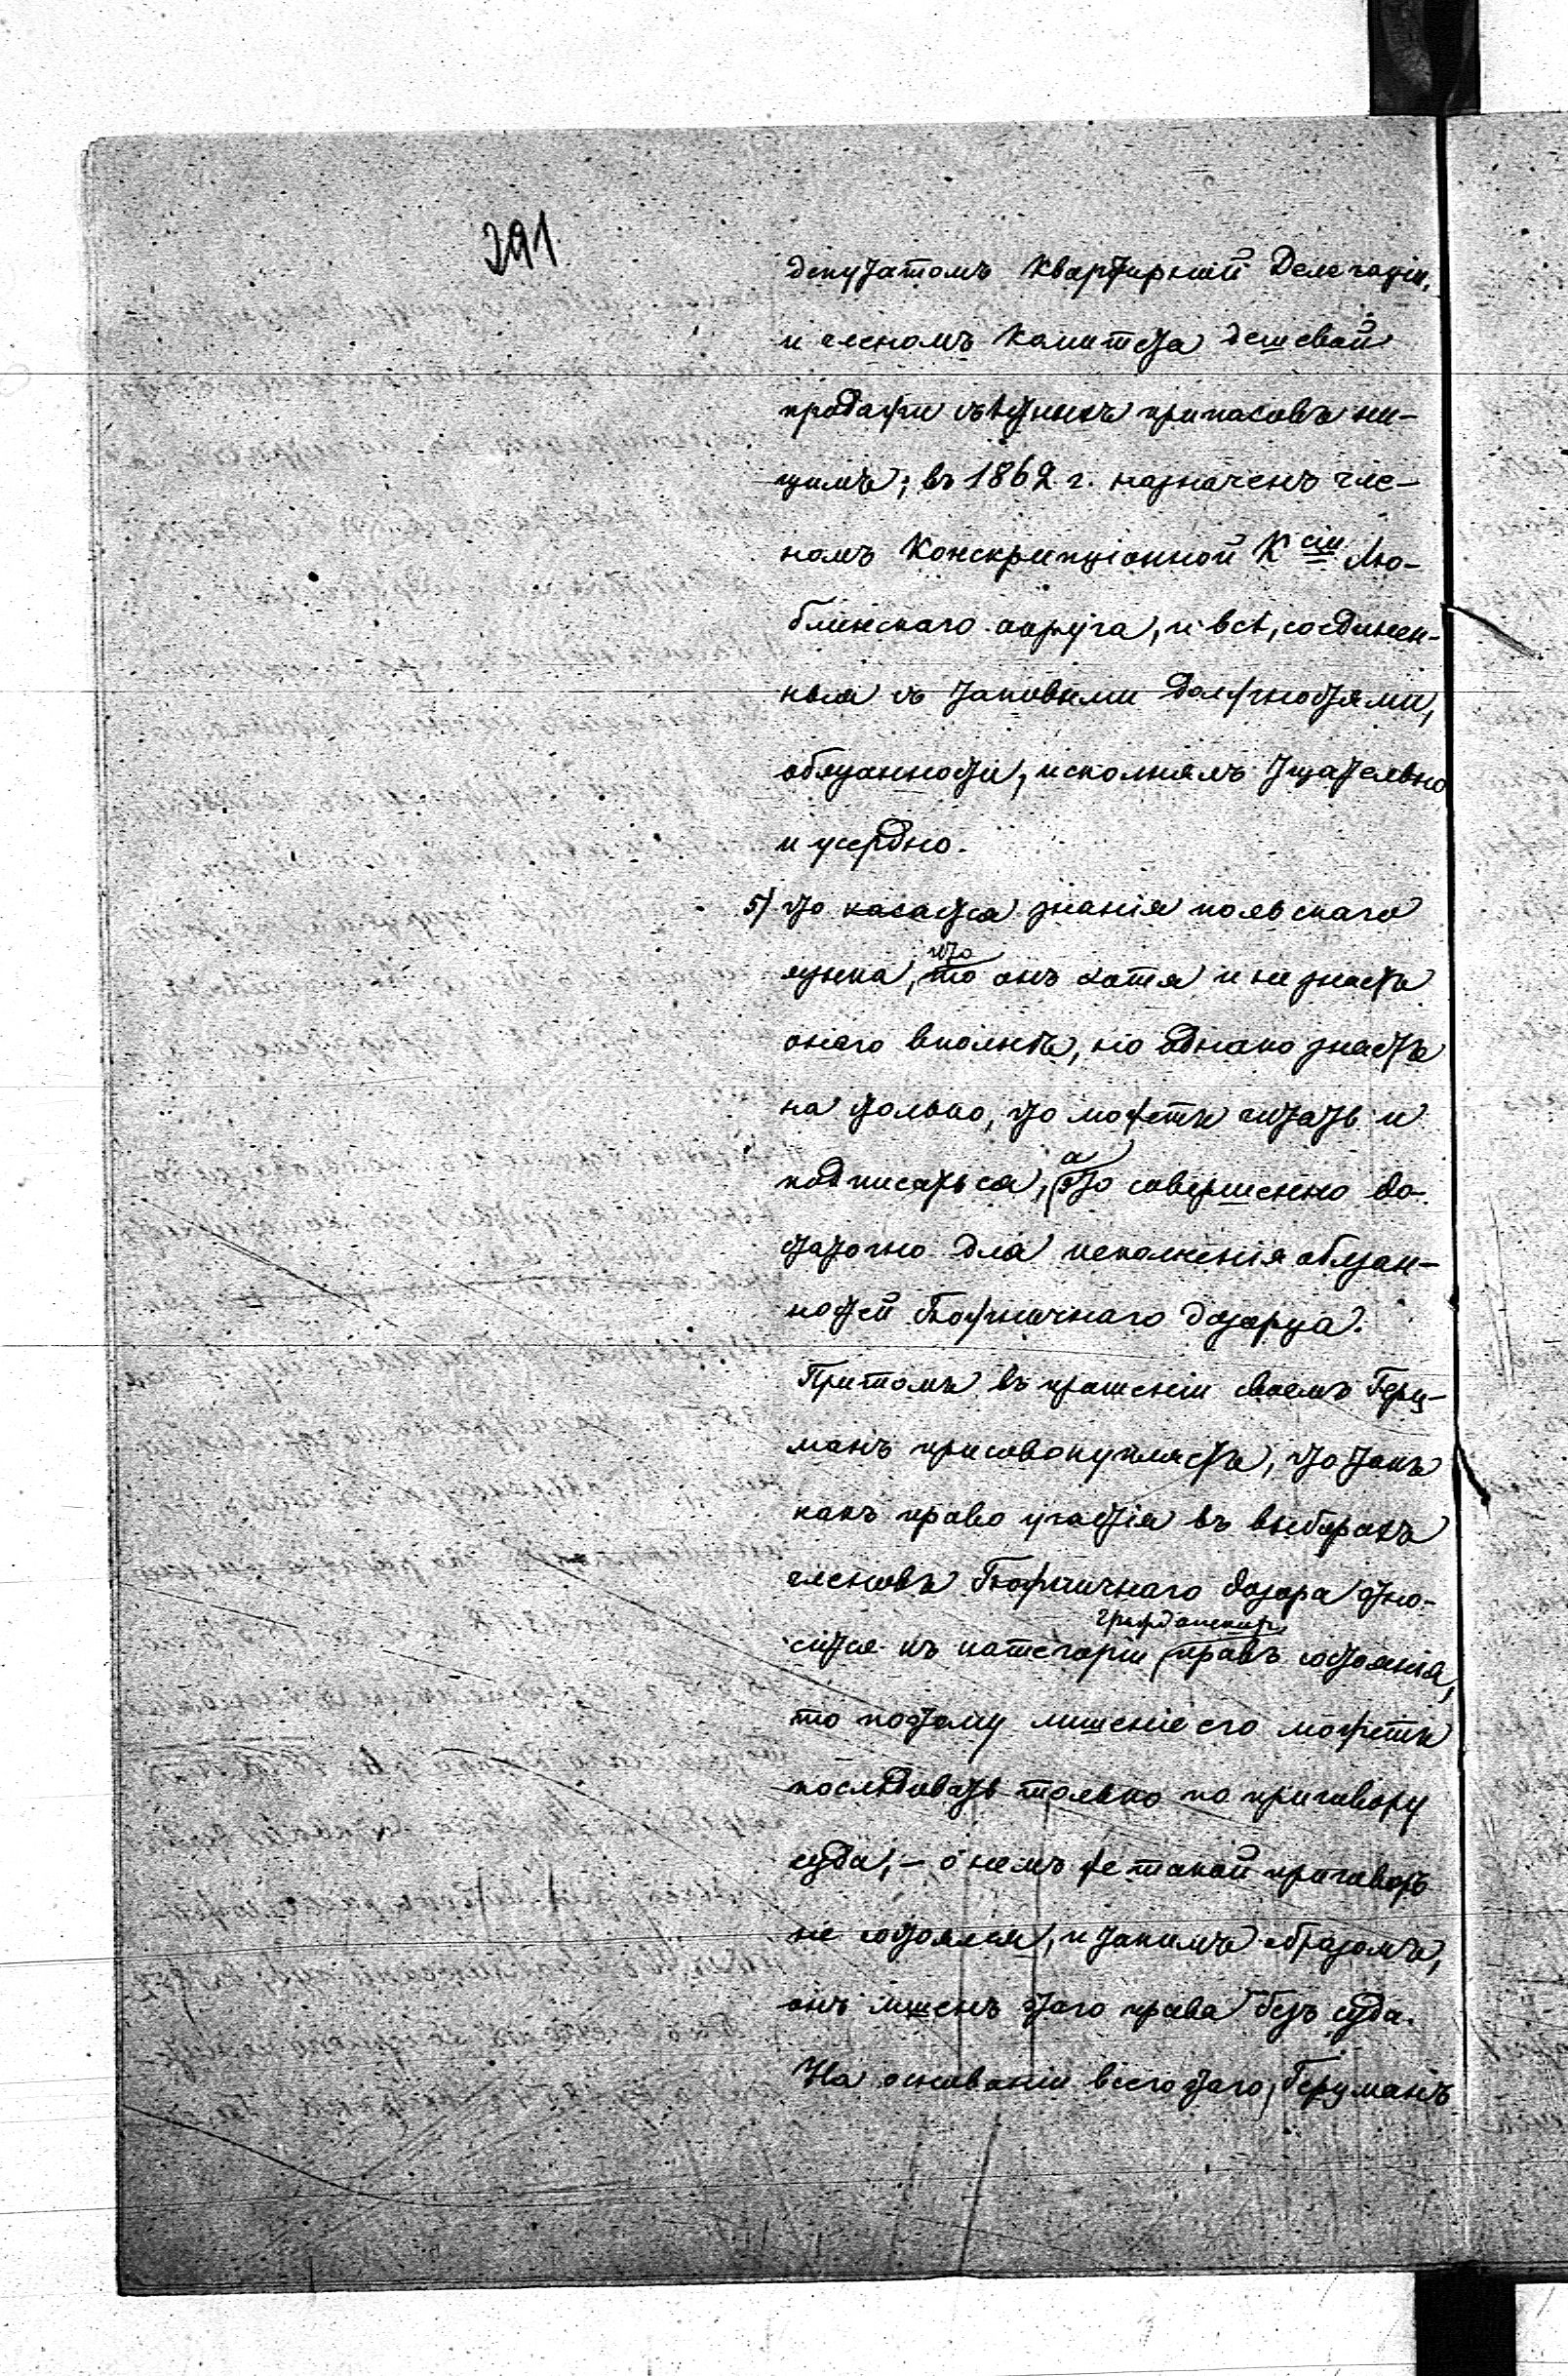 291
депутатомъ Квартирной Делегаціи,
и членомъ Комитета дешевой
продажи съѣстныхъ припасовъ ни-
щимъ; въ 1862 г. назначенъ чле-
номъ Конскрипціонной К<sup>сіи</sup> Лю-
блинскаго округа, и всѣ, соединен-
ныя съ таковыми должностями,
обязанности, исполнялъ тщательно
и усердно.
5) Что касается знанія польскаго
языка, что то онъ хотя и не знаетъ
онаго вполнѣ, но однако знаетъ
на столько, что можетъ читать и
подписаться, а это совершенно до-
статочно для исполненія обязан-
ностей Божничнаго дозорца.
Притомъ въ прошеніи своемъ Герц-
манъ присовокупляетъ, что такъ
какъ право участія въ выборахъ
членовъ Божничнаго дозора отно-
сится къ категоріи гражданскихъ правъ состоянія,
то поэтому лишеніе его можетъ
послѣдовать только по приговору
суда; – о немъ же такой приговоръ
не состоялся, и такимъ образомъ,
онъ лишенъ этого права безъ суда.
На основаніи всего этого, Герцманъ